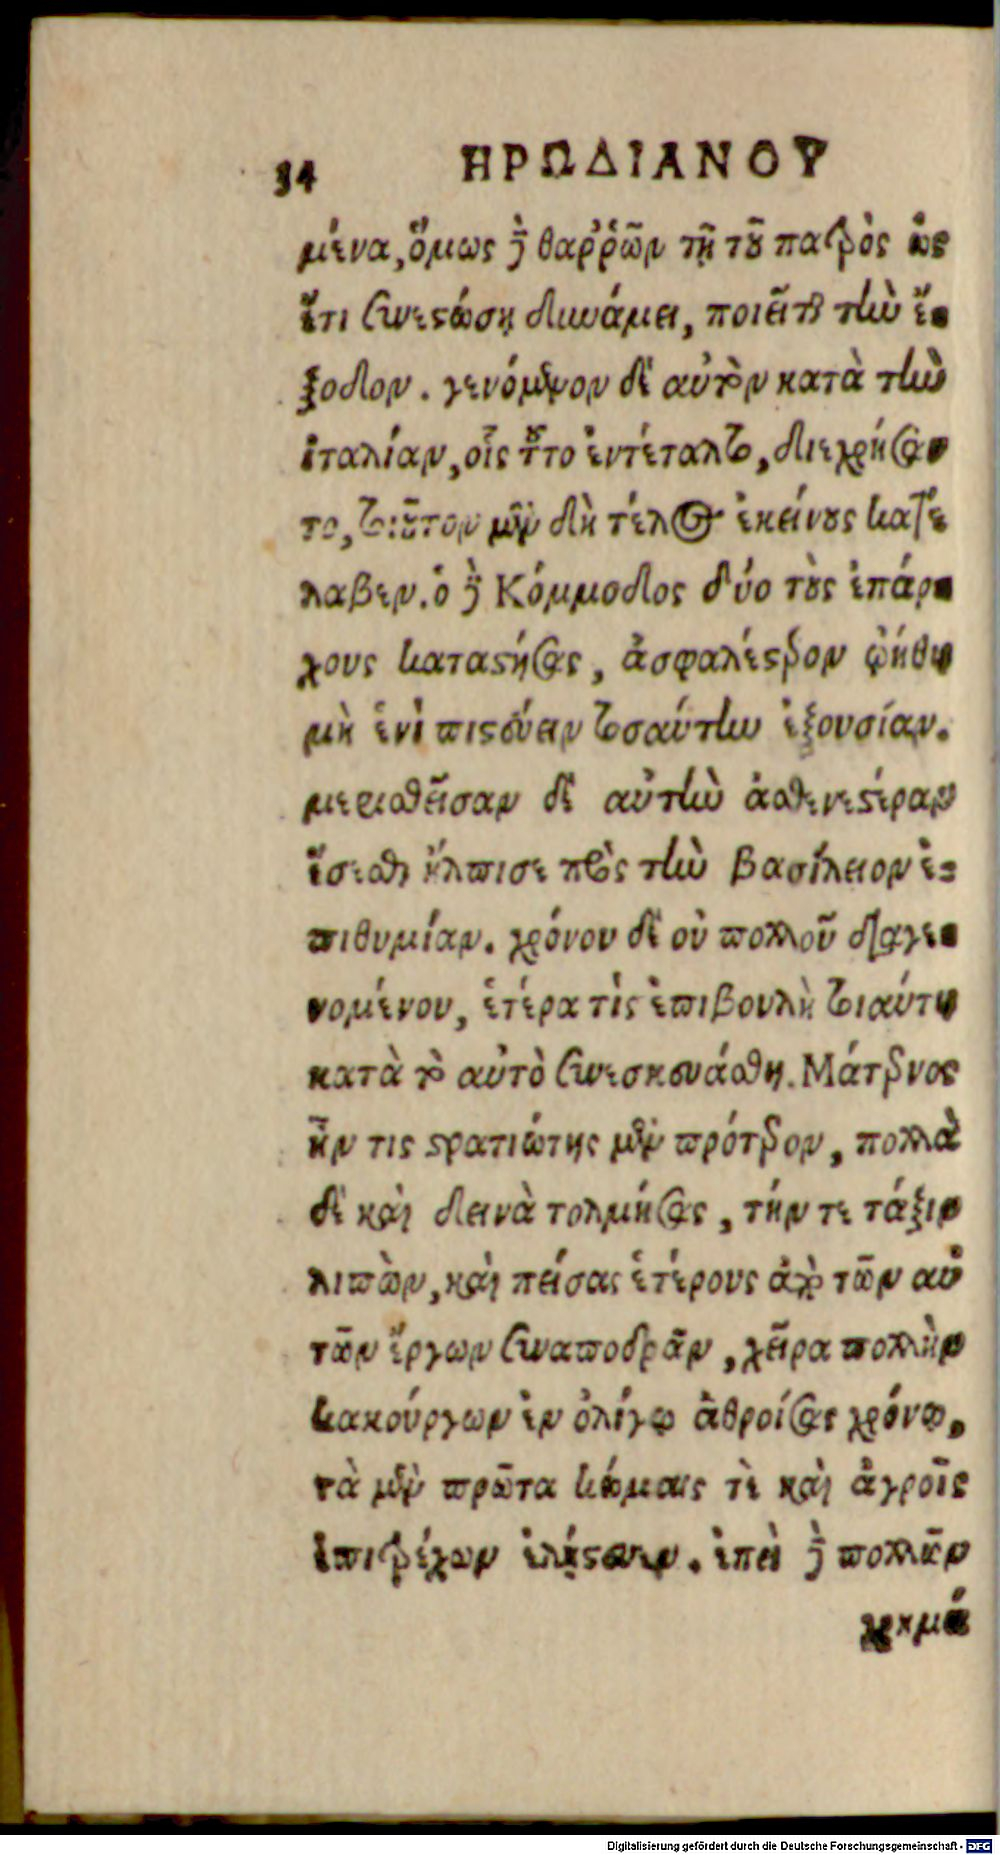 34 ΗΡΩΔΙΑΝΟΥ
μένα, ὅμως δὲ θαῤῥῶν τῇ τοῦ πατρὸς ὡς
ἔτι συνεστώσῃ δυνάμει, ποιεῖται τὴν ἔ-
ξοδον. γενόμενον δὲ αὐτὸν κατὰ τὴν
ἰταλίαν, οἷς τοῦτο ἐντέταλτο, διεχρήσαν
το, τοιοῦτον μὲν δὴ τέλος ἐκείνους κατέ
λαβεν. ὁ δὲ Κόμμοδος δύο τοὺς ἐπάρ-
χους καταστήσας, ἀσφαλέστερον ᾠήθη
μὴ ἑνὶ πιστεύειν τοσαύτην ἐξουσίαν.
μερισθεῖσαν δὲ αὐτὴν ἀσθενεστέραν
ἔσεσθαι ἤλπισε πρὸς τὴν βασίλειον ἐ-
πιθυμίαν. χρόνου δὲ οὐ πολλοῦ διαγε-
νομένου, ἑτέρα τίς ἐπιβουλὴ τοιαύτη
κατὰ τὸ αὐτὸ συνεσκευάσθη. Μάτερνος
ἦν τις στρατιώτης μὲν πρότερον, πολλὰ
δὲ καὶ δεινὰ τολμήσας, τήν τε τάξιν
λιπὼν, καὶ πείσας ἑτέρους ἀπὸ τῶν αὐ
τῶν ἔργων συναποδρᾶν, χεῖρα πολλὴν
κακούργων ἐν ὀλίγῳ ἀθροίσας χρόνῳ,
τὰ μὲν πρῶτα κώμαις τὲ καὶ ἀγροῖς
ἐπιτρέχων ἐλῄστευεν. ἐπεὶ δὲ πολλῶν
χρημά
Digitalisierung gefördert durch die Deutsche Forschungsgemeinschaft - DFG